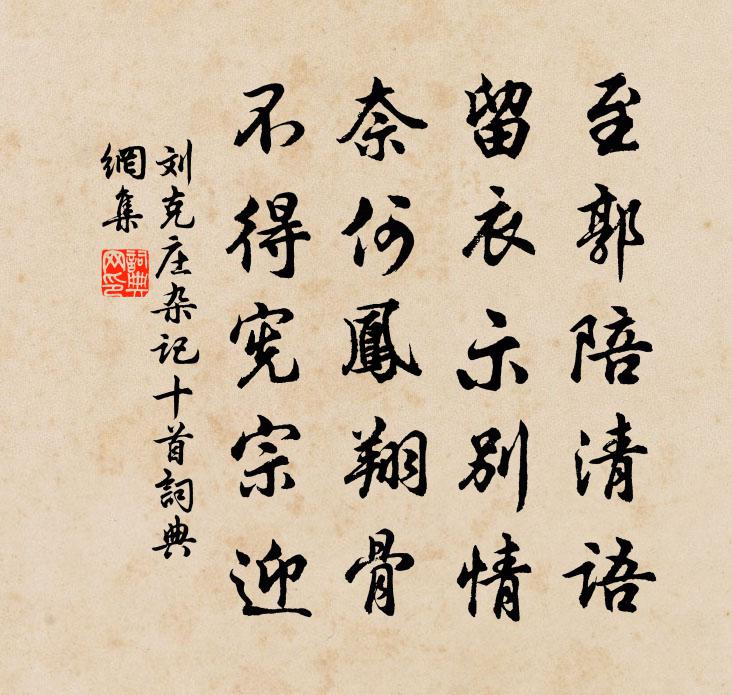 至郭陪清语
留衣示别情
奈何鳳翔骨
不得宪宗迎
刘克庄杂记十首詞典
網集
詞典
网印